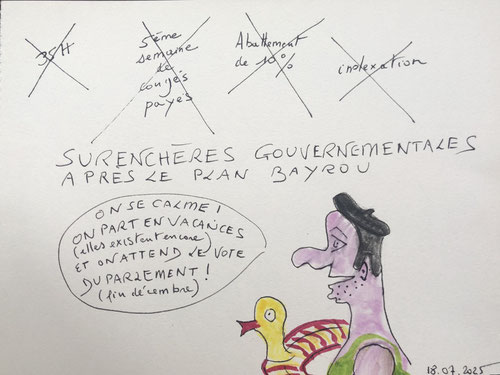 35H
5ème
semaine
de
congés
payés
Abattement
de 10%
indexation
SURENCHÈRES GOUVERNEMENTALES
APRES LE PLAN BAYROU
ON SE CALME !
ON PART EN VACANCES
(elles existent encore)
ET ON ATTEND LE VOTE
DU PARLEMENT !
(fin décembre)
18.07.2025